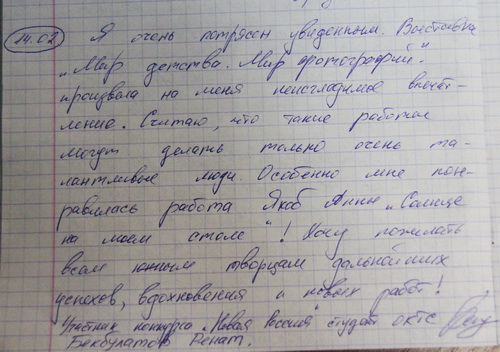 14.02 Я очень потрясен увиденным. Выставка
„Мир детства. Мир фотографий."
произвела на меня неизгладимое впечат-
ление. Считаю, что такие работы
могут делать только очень та-
лантливые люди. Особенно мне пон-
равилась работа Якоб Анны „Солнце
на моем столе"! Хочу пожелать
всем юным творцам дальнейших
успехов, вдохновения и новых работ!
Участник конкурса „Новая Россия" студент ОКТС
Бекбулатов Ренат.